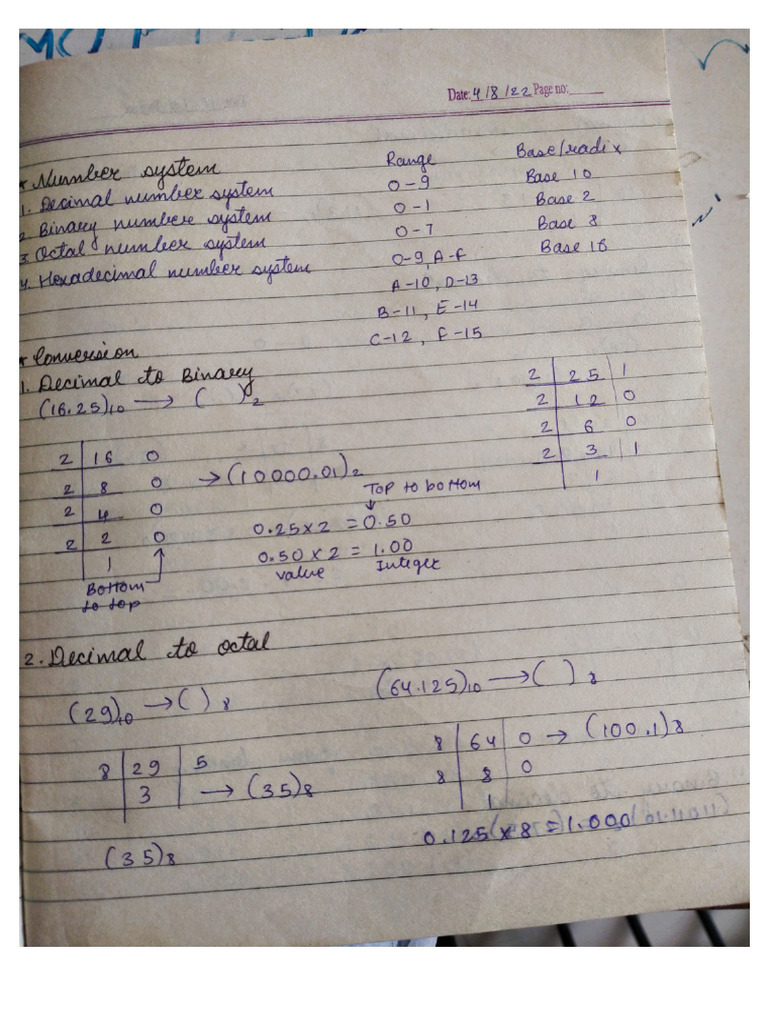 Date: 4/8/22 Page no:
* Number system Range Base/radix
1. Decimal number system 0-9 Base 10
2 Binary number system 0-1 Base 2
3 Octal number system 0-7 Base 8
4. Hexadecimal number system 0-9, A-F Base 16
A-10, D-13
B-11, E-14
C-12, F-15
* Conversion
1. Decimal to Binary
(16.25)₁₀ → ( )₂
2 16 0
2 8 0 → (10000.01)₂
2 4 0
2 2 0
1
Bottom
to top
Top to bottom
0.25 x 2 = 0.50
0.50 x 2 = 1.00
value Integer
2 25 1
2 12 0
2 6 0
2 3 1
1
2. Decimal to octal
(29)₁₀ → ( )₈
8 29 5
3 → (35)₈
(35)₈
(64.125)₁₀ → ( )₈
8 64 0 → (100.1)₈
8 8 0
1
0.125 x 8 = 1.000